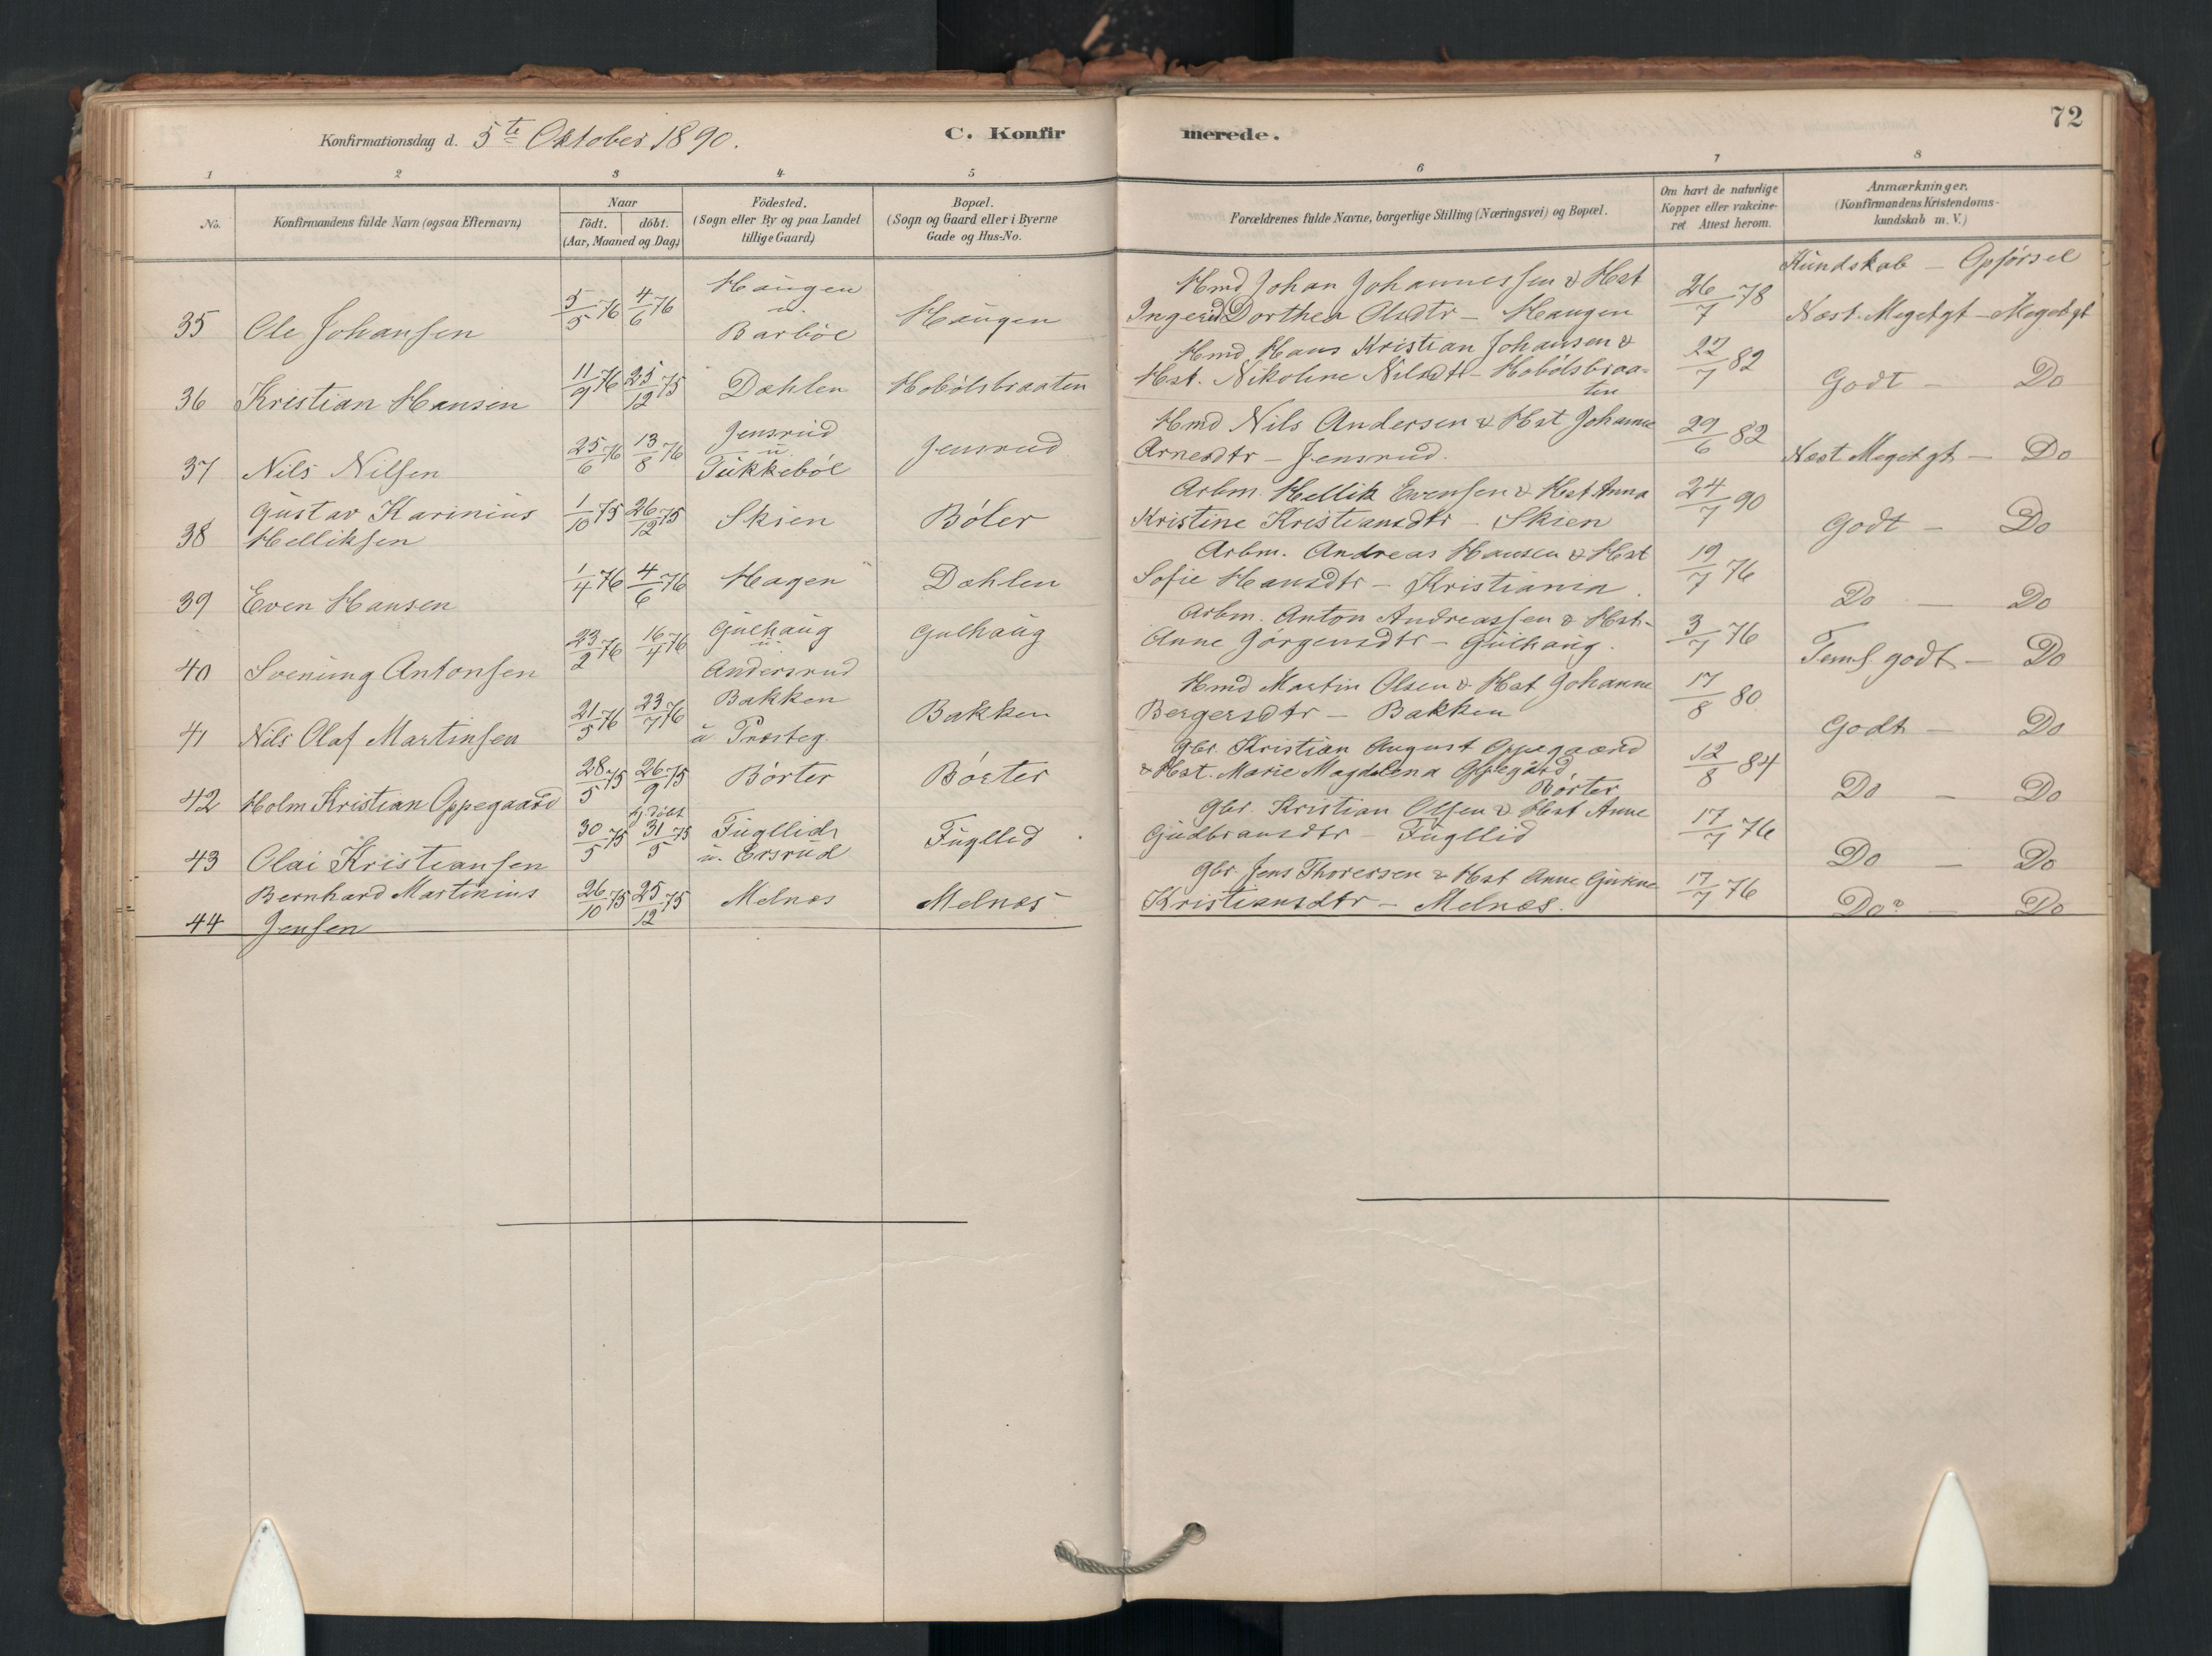 72
Konfirmationsdag d. 5te Oktober 1890.
C. Konfirmerede.
1 2 3 4 5 6 7 8
No.
Konfirmandens fulde Navn (ogsaa Efternavn)
Naar
födt. döbt.
(Aar, Maaned og Dag)
Födested.
(Sogn eller By og paa Landet
tillige Gaard)
Bopæl.
(Sogn og Gaard eller i Byerne
Gade og Hus-No.
Forældrenes fulde Navne, borgerlige Stilling (Næringsvei) og Bopæl.
Om havt de naturlige
Kopper eller vakcine-
ret Attest herom.
Anmærkninger,
(Konfirmandens Kristendoms-
kundskab m. V.)
Kundskab – Opförsel
35 Ole Johansen 5/5 76 4/6 76
Haugen
u.
Barböl
Haugen
Hmd Johan Johannessen & Hst
Ingerid Dorthea Olsdtr – Haugen
26/7 78
Næst. Megetgt – Megetgt
36 Kristian Hansen 11/9 76 25/12 75
Dæhlen
Hobölsbraaten
Hmd Hans Kristian Johansen &
Hst. Nikoline Nilsdtr – Hobölsbraa-
ten
27/7 82
Godt – Do
37 Nils Nilsen 25/6 76 13/8 76
Jensrud
u.
Tukkeböl
Jensrud
Hmd Nils Andersen & Hst Johanne
Arnesdtr – Jensrud.
29/6 82
Næst Megetgt – Do
Gustav Karinius
38 Helliksen 1/10 75 26/12 75
Skien
Böler
Arbm. Hellik Evensen & Hst Anna
Kristine Kristiansdtr – Skien
24/7 90
Godt – Do
39 Even Hansen 1/4 76 4/6 76
Hagen
Dæhlen
Arbm. Andreas Hansen & Hst
Sofie Hansdtr – Kristiania.
19/7 76
Do – Do
40 Svenung Antonsen 23/2 76 16/4 76
Gulhaug
u
Andersrud
Gulhaug
Arbm. Anton Andreassen & Hst.
Anne Jörgensdtr – Gulhaug.
3/7 76
Teml. godt – Do
41 Nils Olaf Martinsen 21/5 76 23/7 76
Bakken
u. Præsteg.
Bakken
Hmd Martin Olsen & Hst Johanne
Bergersdtr – Bakken
17/8 80
Godt – Do
42 Holm Kristian Oppegaard 28/5 75 26/9 75
Börter
Börter
Gbr. Kristian August Oppegaard
& Hst. Marie Magdalena Oppegård
Börter
12/8 84
Do – Do
hj. döbt
43 Olai Kristiansen 30/5 75 31/5 75
Fugllid
u. Ersrud
Fugllid
Gbr. Kristian Olsen & Hst Anne
Gudbransdtr – Fugllid
17/7 76
Do – Do
Bernhard Martinius
44 Jensen 26/10 75 25/12 75
Melnæs
Melnæs
Gbr. Jens Thoresen & Hst Anne
Kristiansdtr – Melnæs.
17/7 76
Do – Do